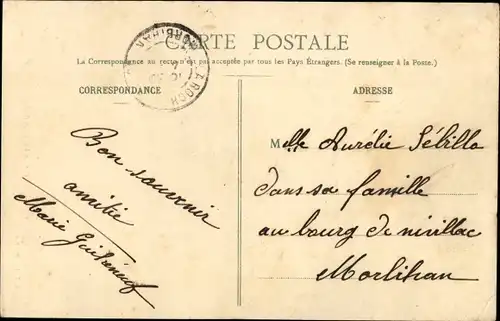 CARTE POSTALE
La Correspondance au recto n'est pas acceptée par tous les Pays Étrangers. (Se renseigner à la Poste.)
CORRESPONDANCE
ADRESSE
MORBIHAN
Bon souvenir
amitié
Marie
Melle Aurélie Sébillo
dans sa famille
au bourg de nivillac
Morbihan